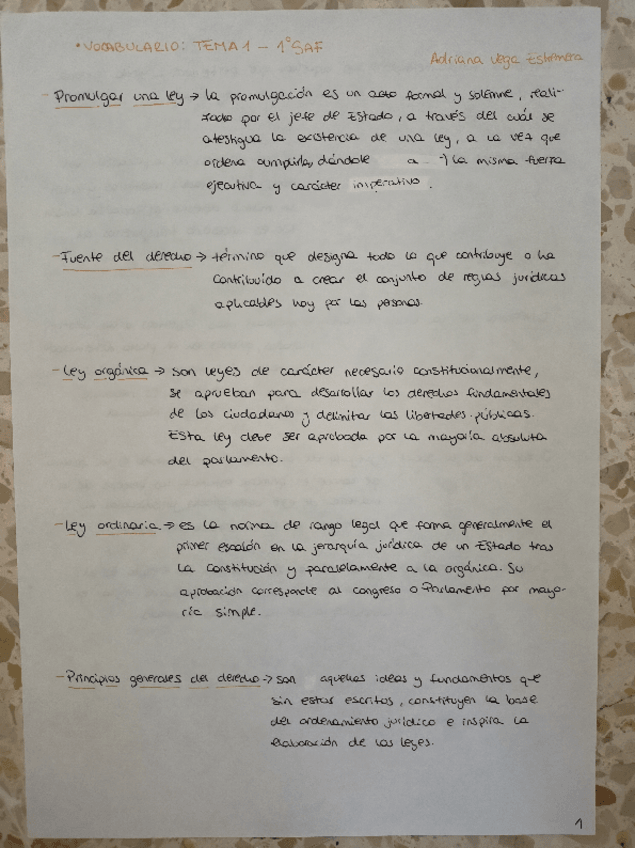 • VOCABULARIO: TEMA 1 - 1º SAF
Adriana Vega Estornera
- Promulgar una ley → la promulgación es un acto formal y solemne, reali-
zado por el jefe de Estado, a través del cuál se
atestigua la existencia de una ley, a la vez que
ordena cumplirla, dándole a la misma fuerza
ejecutiva y carácter imperativo.
- Fuente del derecho → término que designa todo lo que contribuye o ha
contribuido a crear el conjunto de reglas jurídicas
aplicables hoy por las personas.
- Ley orgánica → son leyes de carácter necesario constitucionalmente,
se aprueban para desarrollar los derechos fundamentales
de los ciudadanos y delimitar las libertades públicas.
Esta ley debe ser aprobada por la mayoría absoluta
del parlamento.
- Ley ordinaria → es la norma de rango legal que forma generalmente el
primer escalón en la jerarquía jurídica de un Estado tras
la Constitución y paralelamente a la orgánica. Su
aprobación corresponde al congreso o Parlamento por mayo-
ría simple.
- Principios generales del derecho → son aquellas ideas y fundamentos que
sin estar escritos, constituyen la base
del ordenamiento jurídico e inspira la
elaboración de las leyes.
1